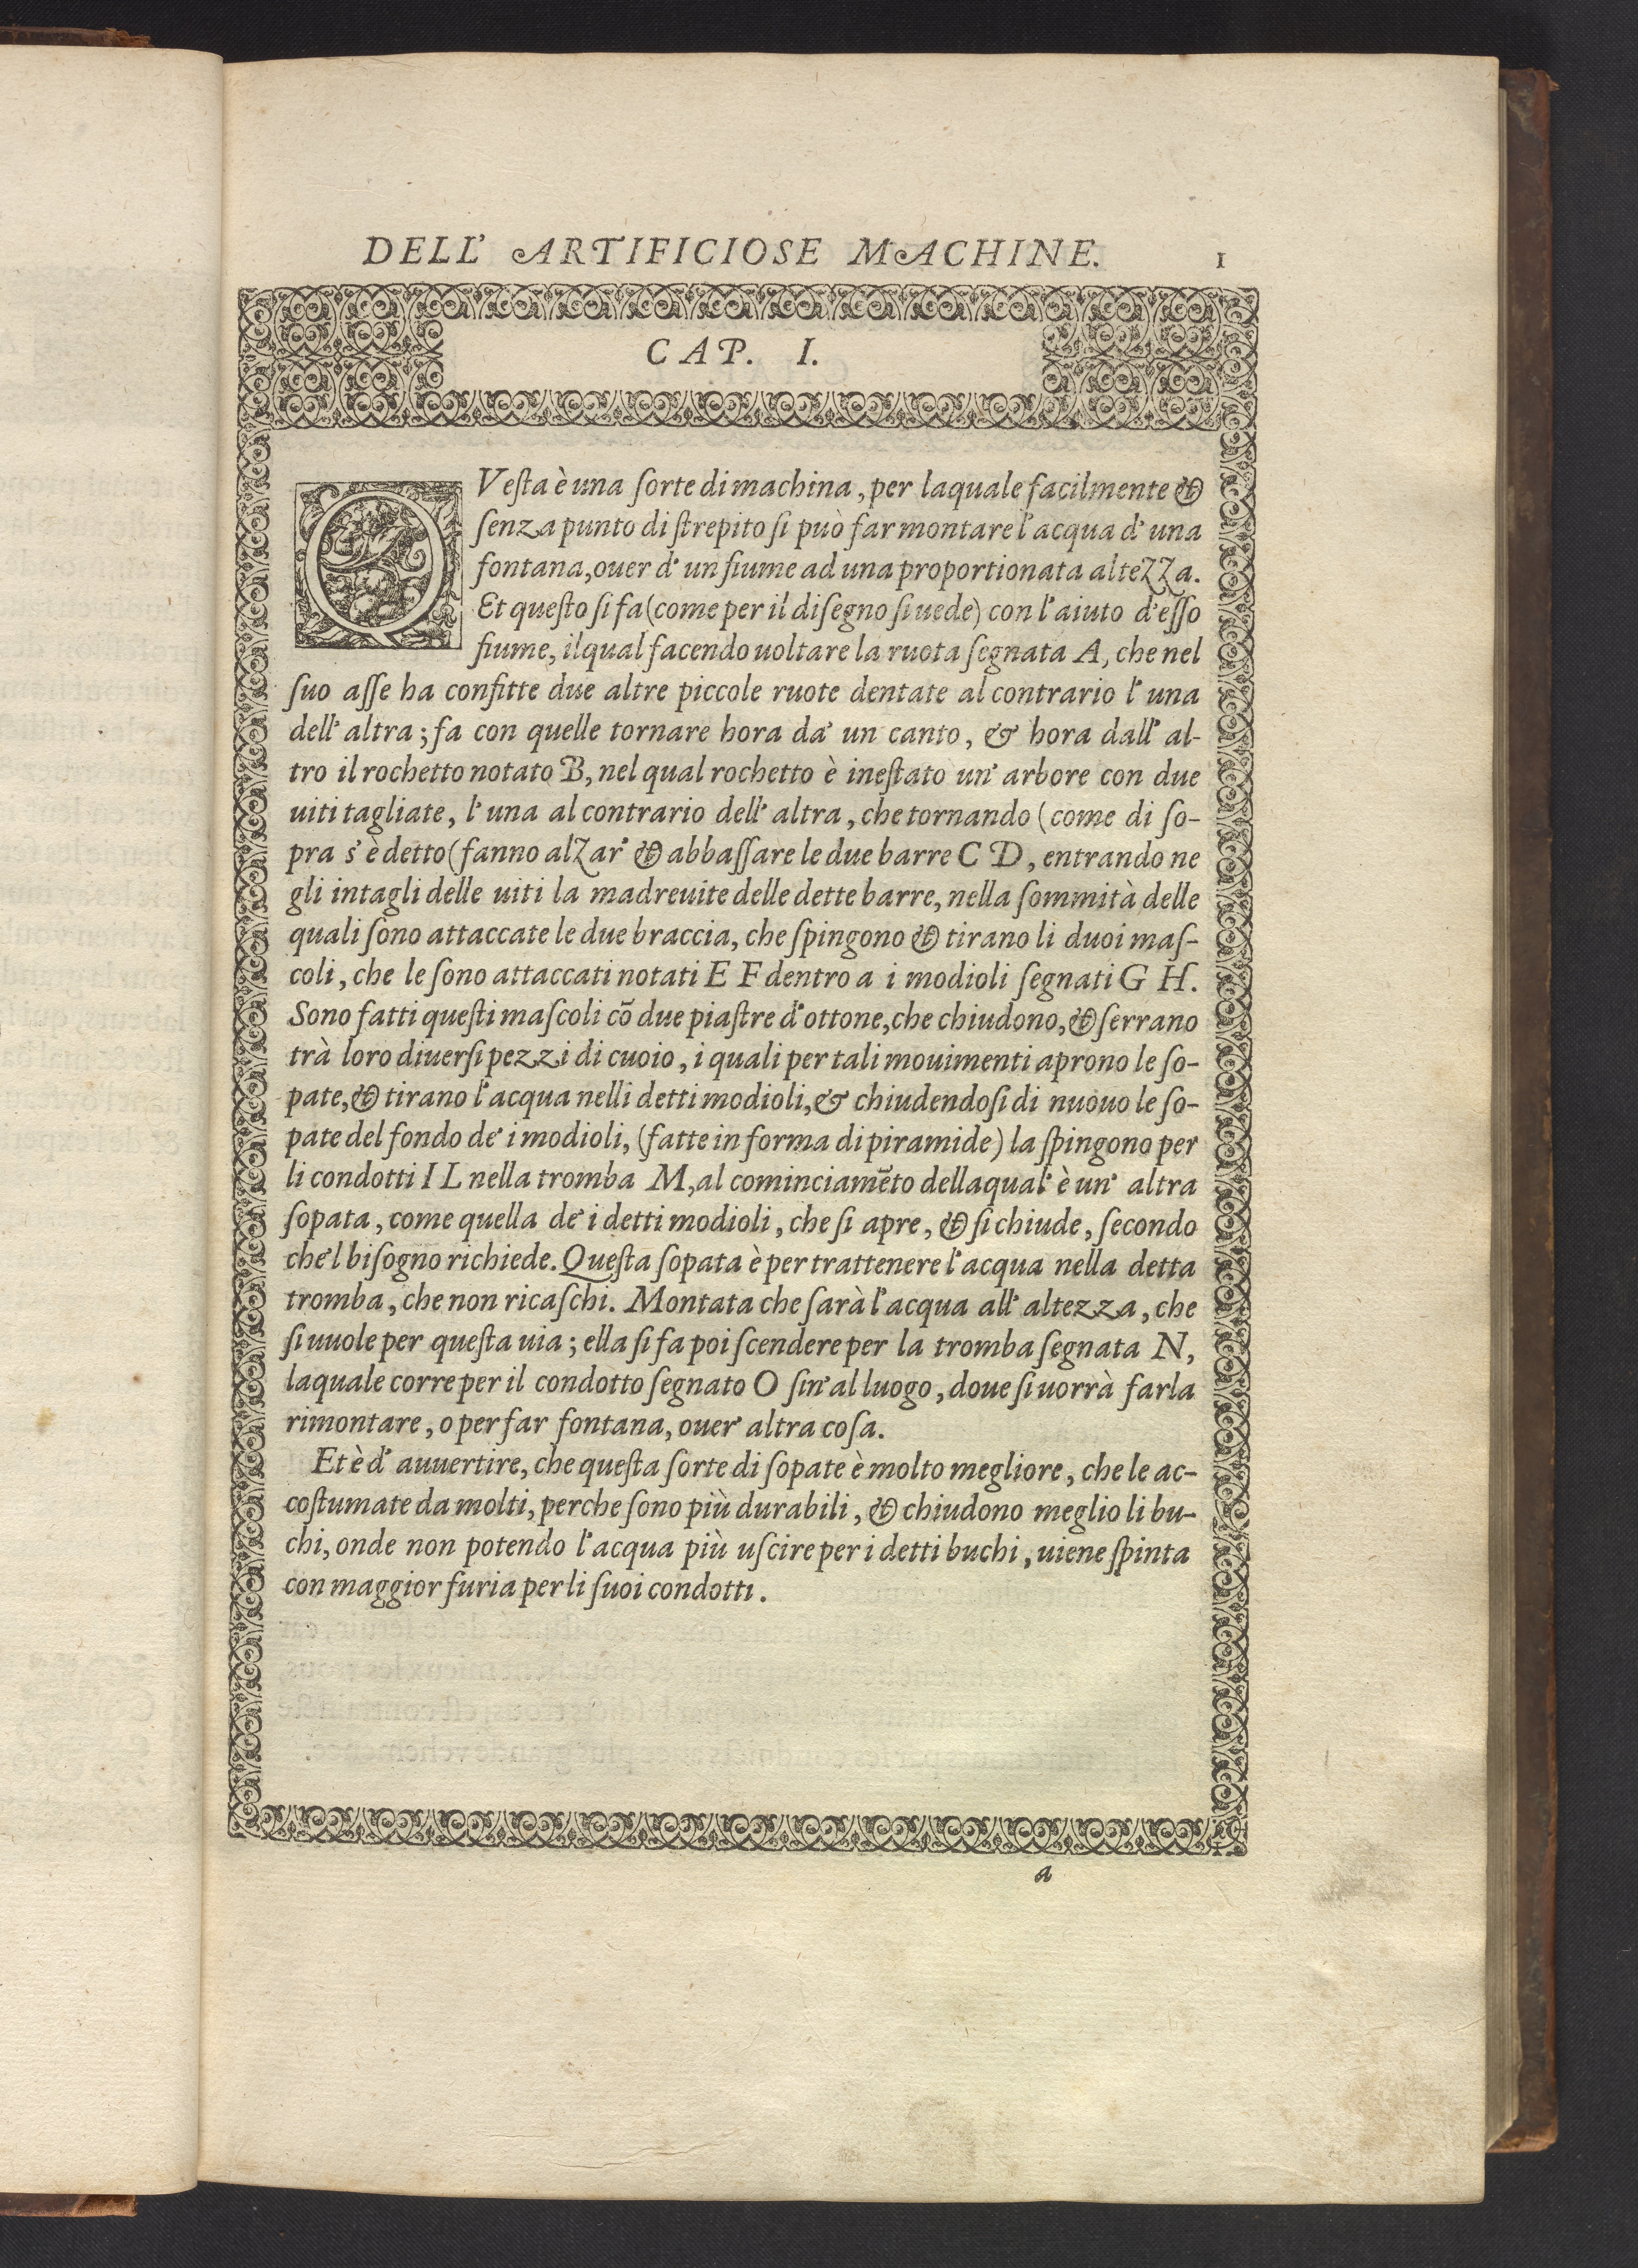 DELL' ARTIFICIOSE MACHINE. 1
CAP. I.
QVesta è una sorte di machina, per laquale facilmente &
senza punto di strepito si può far montare l'acqua d'una
fontana, ouer d'un fiume ad una proportionata altezza.
Et questo si fa (come per il disegno si uede) con l'aiuto d'esso
fiume, ilqual facendo uoltare la ruota segnata A, che nel
suo asse ha confitte due altre piccole ruote dentate al contrario l'una
dell'altra; fa con quelle tornare hora da' un canto, & hora dall'al-
tro il rochetto notato B, nel qual rochetto è inestato un'arbore con due
uiti tagliate, l'una al contrario dell'altra, che tornando (come di so-
pra s'è detto( fanno alzar' & abbassare le due barre C D, entrando ne
gli intagli delle uiti la madreuite delle dette barre, nella sommità delle
quali sono attaccate le due braccia, che spingono & tirano li duoi mas-
coli, che le sono attaccati notati E F dentro a i modioli segnati G H.
Sono fatti questi mascoli cō due piastre d'ottone, che chiudono, & serrano
trà loro diuersi pezzi di cuoio, i quali per tali mouimenti aprono le so-
pate, & tirano l'acqua nelli detti modioli, & chiudendosi di nuouo le so-
pate del fondo de' i modioli, (fatte in forma di piramide) la spingono per
li condotti I L nella tromba M, al cominciamēto dellaqual' è un' altra
sopata, come quella de' i detti modioli, che si apre, & si chiude, secondo
che'l bisogno richiede. Questa sopata è per trattenere l'acqua nella detta
tromba, che non ricaschi. Montata che sarà l'acqua all'altezza, che
si uuole per questa uia; ella si fa poi scendere per la tromba segnata N,
laquale corre per il condotto segnato O sin'al luogo, doue si uorrà farla
rimontare, o per far fontana, ouer' altra cosa.
Et è d'auuertire, che questa sorte di sopate è molto megliore, che le ac-
costumate da molti, perche sono più durabili, & chiudono meglio li bu-
chi, onde non potendo l'acqua più uscire per i detti buchi, uiene spinta
con maggior furia per li suoi condotti.
a